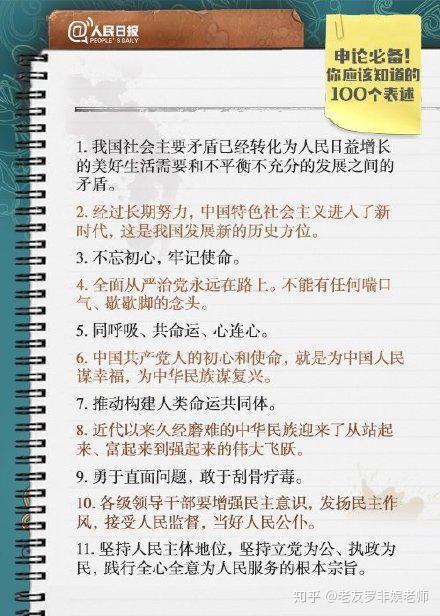 @人民日报
PEOPLE'S DAILY
申论必备！
你应该知道的
100个表述
1. 我国社会主要矛盾已经转化为人民日益增长
的美好生活需要和不平衡不充分的发展之间的
矛盾。
2. 经过长期努力，中国特色社会主义进入了新
时代，这是我国发展新的历史方位。
3. 不忘初心，牢记使命。
4. 全面从严治党永远在路上。不能有任何喘口
气、歇歇脚的念头。
5. 同呼吸、共命运、心连心。
6. 中国共产党人的初心和使命，就是为中国人民
谋幸福，为中华民族谋复兴。
7. 推动构建人类命运共同体。
8. 近代以来久经磨难的中华民族迎来了从站起
来、富起来到强起来的伟大飞跃。
9. 勇于直面问题，敢于刮骨疗毒。
10. 各级领导干部要增强民主意识，发扬民主作
风，接受人民监督，当好人民公仆。
11. 坚持人民主体地位，坚持立党为公、执政为
民，践行全心全意为人民服务的根本宗旨。
知乎 @老友罗非娱老师